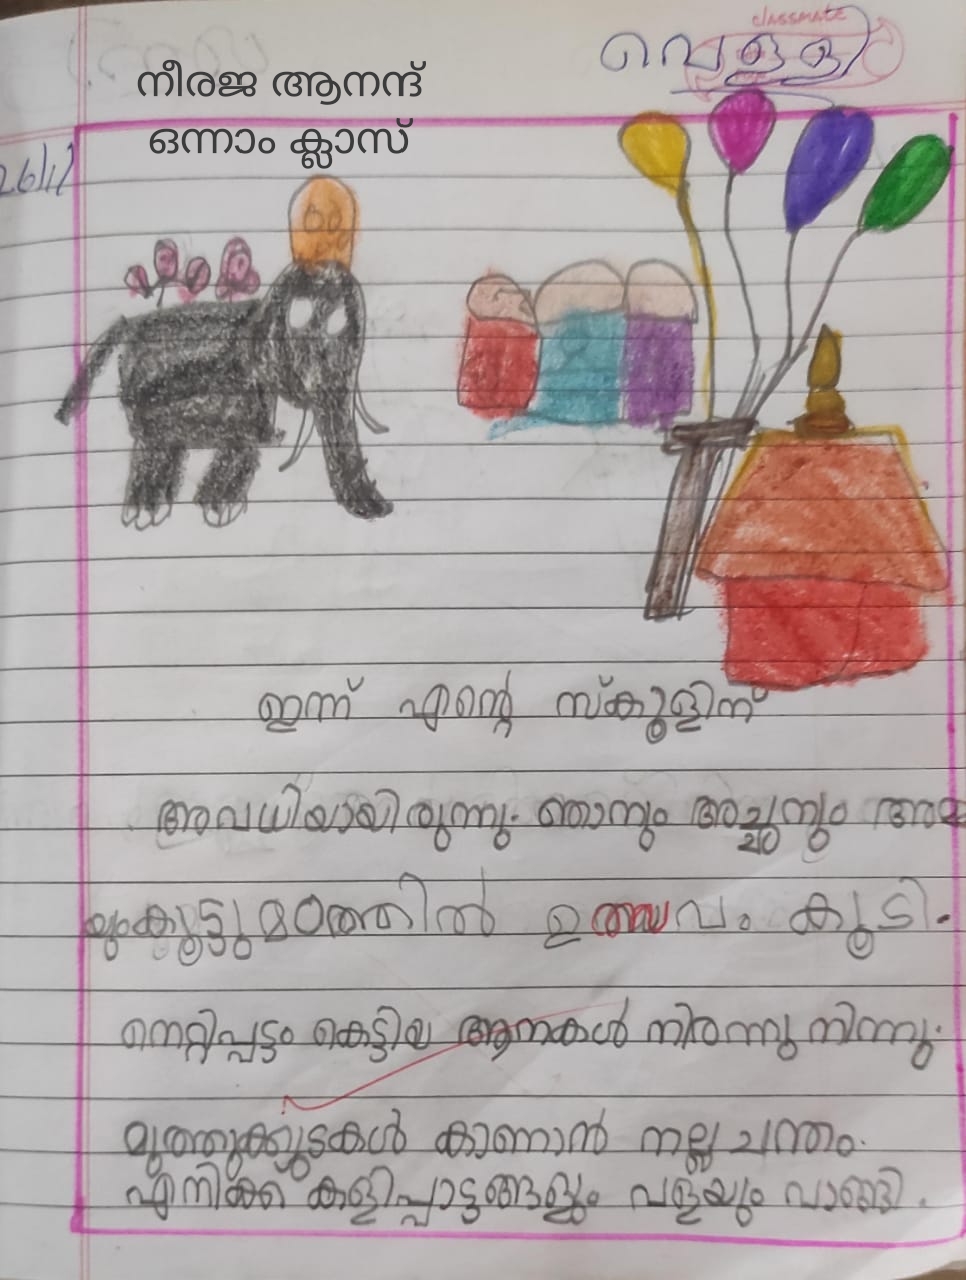 classmate
വെള്ളി
നീരജ ആനന്ദ്
ഒന്നാം ക്ലാസ്
26/1/
ഇന്ന് എന്റെ സ്കൂളിന്
അവധിയായിരുന്നു. ഞാനും അച്ചനും അമ്മ
യുംകൂട്ടുമഠത്തിൽ ഉത്സവം കൂടി.
നെറ്റിപ്പട്ടം കെട്ടിയ ആനകൾ നിരന്നു നിന്നു.
മുത്തുക്കുടകൾ കാണാൻ നല്ല ചന്തം.
എനിക്ക് കളിപ്പാട്ടങ്ങളും വളയും വാങ്ങി.